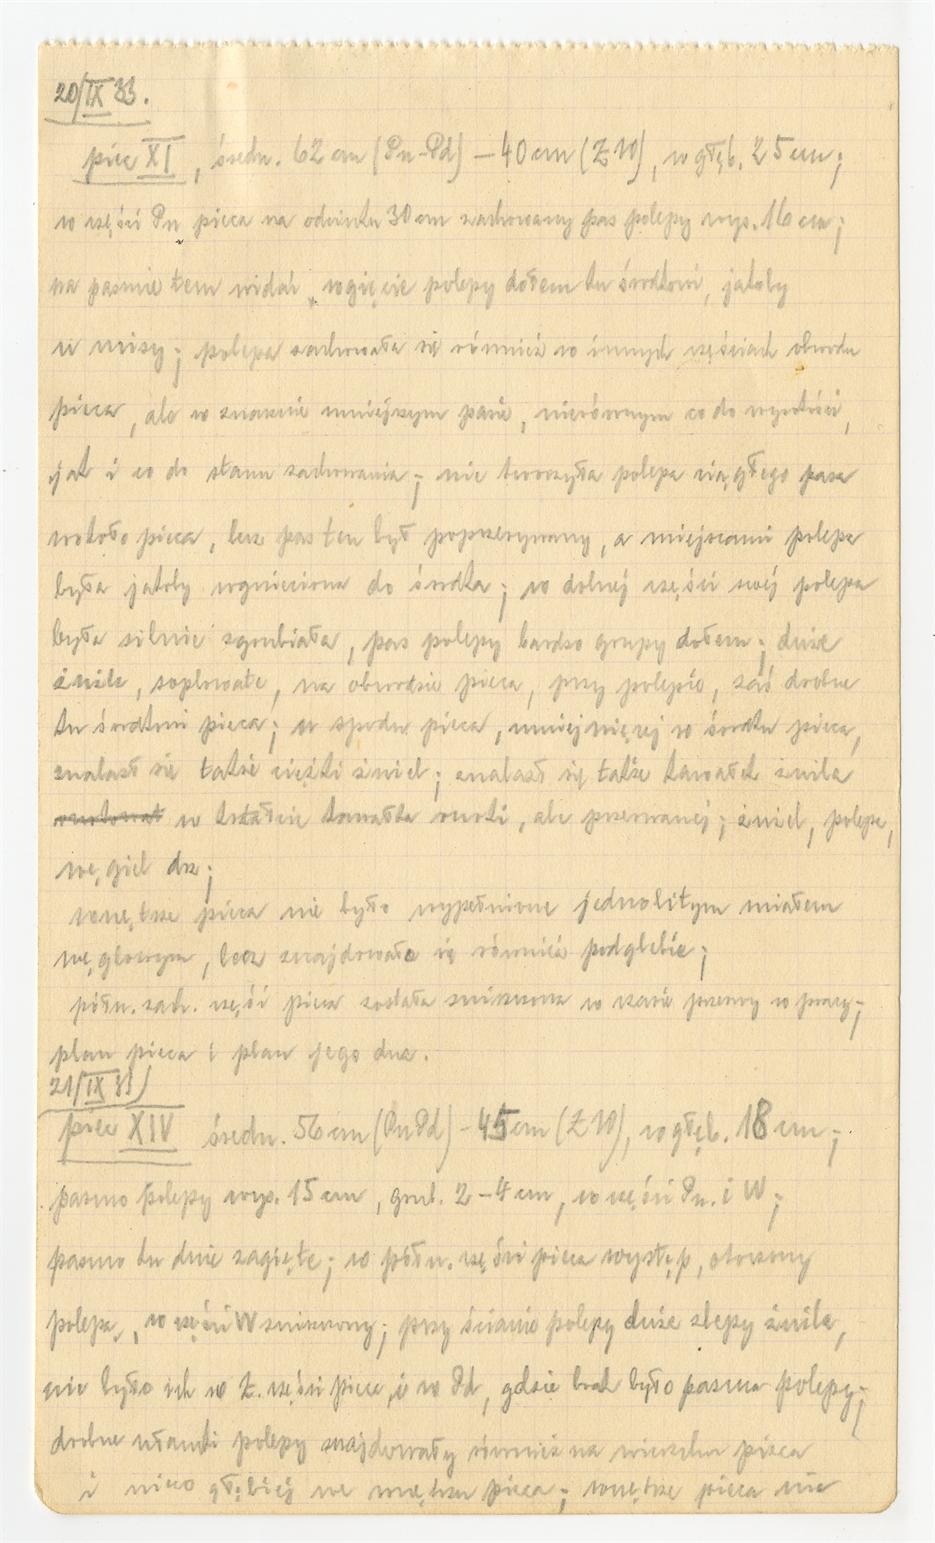 20/IX 33.
piec XI, średn. 62 cm (Pn-Pd) – 40 cm (Z W), w głęb. 25 cm;
w części Pn pieca na odcinku 30 cm zachowany pas polepy wys. 16 cm;
na paśmie tem widać wgięcie polepy dołem ku środkowi, jakby
u misy; polepa zachowała się również w innych częściach obwodu
pieca, ale w znacznie mniejszym pasie, nierównym co do wysokości,
jak i co do stanu zachowania; nie tworzyła polepa ciągłego pasa
wokoło pieca, lecz pas ten był poprzerywany, a miejscami polepa
była jakby wgnieciona do środka; w dolnej części swej polepa
była silnie zgrubiała, pas polepy bardzo gruby dołem; duże
żużle, soplowate, na obwodzie pieca, przy polepie, zaś drobne
ku środkowi pieca; u spodu pieca, mniej więcej w środku pieca,
znalazł się także ciężki żużel; znalazł się także kawałek żużla
w kształcie kawałka rurki, ale przerwanej; żużel, polepa,
węgiel drz;
wnętrze pieca nie było wypełnione jednolitym miałem
węglowym, lecz znajdowała się również podglebie;
półn. zach. część pieca została zniszczona w czasie przerwy w pracy;
plan pieca i plan jego dna.
21/IX 33
piec XIV średn. 56 cm (Pn Pd) – 45 cm (Z W), w głęb. 18 cm;
pasmo polepy wys. 15 cm, grub. 2–4 cm, w części Pn. i W;
pasmo ku dnie zagięte; w półn. części pieca występ, otoczony
polepą, w części W zniszczony; przy ścianie polepy duże zlepy żużla,
nie było ich w Z. części pieca i w Pd, gdzie brak było pasma polepy;
drobne ułamki polepy znajdowały również na wierzchu pieca
i nieco głębiej we wnętrzu pieca; wnętrze pieca nie